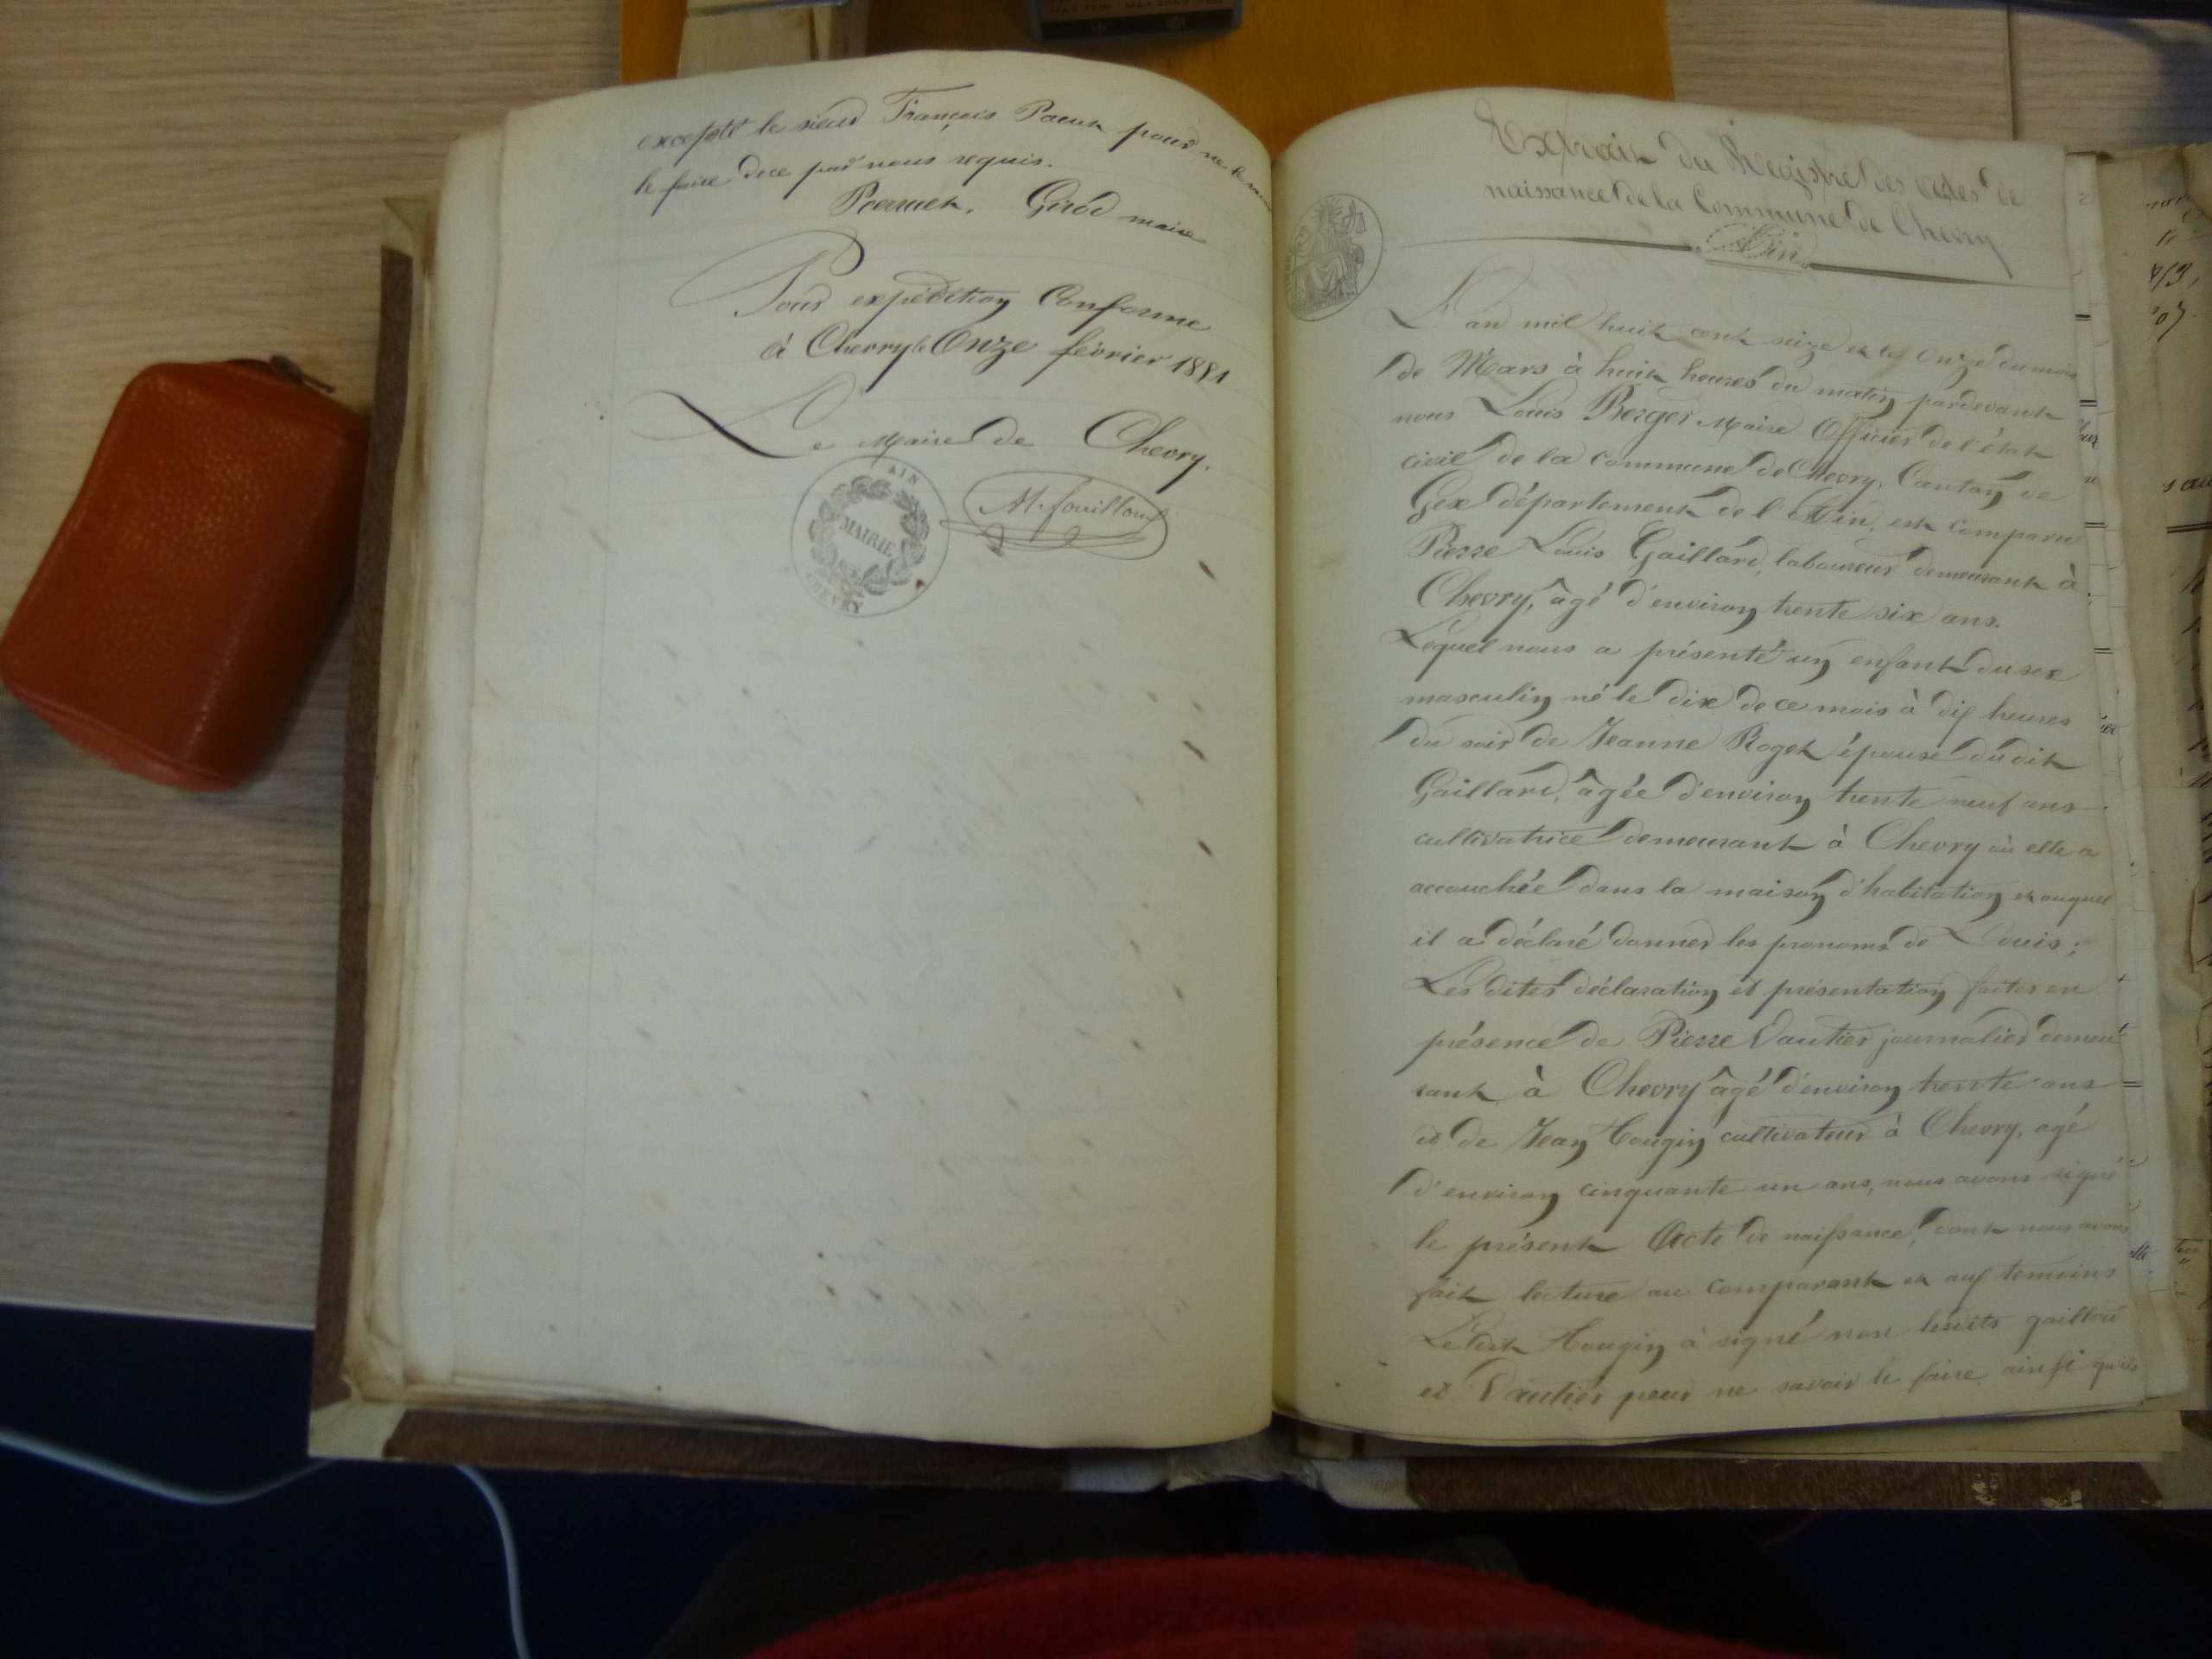 excepté le sieur François Pacut pour ne le
le faire de ce par nous requis.
Girod maire
Pour expédition Conforme
à Chevry le Onze février 1851
Le Maire de Chevry.
AIN
MAIRIE
CHEVRY
Extrait du Registre des actes de
naissance de la Commune de Chevry
Ain
L'an mil huit cent seize et le Onze du mois
de Mars à huit heures du matin pardevant
nous Louis Berger Maire Officier de l'état
civil de la commune de Chevry, Canton de
Gex département de l'Ain, est comparu
Pierre Louis Gaillard, laboureur demeurant à
Chevry, âgé d'environ trente six ans.
Lequel nous a présenté un enfant du sex
masculin né le dix de ce mois à dix heures
du soir de Jeanne Roget épouse dudit
Gaillard, âgée d'environ trente neuf ans
cultivatrice demeurant à Chevry où elle a
accouchée dans la maison d'habitation et auquel
il a déclaré donner les prenoms de Louis;
Les dites déclaration et présentation faites en
présence de Pierre Vautier journalier demeu
rant à Chevry âgé d'environ trente ans
et de Jean Hougin cultivateur à Chevry, agé
d'environ cinquante un ans, nous avons signé
le présent Acte de naissance, dont nous avons
fait lecture au Comparant et aux temoins
Ledit Hougin à signé non lesdits gaillard
et Vautier pour ne savoir le faire ainsi qu'ils